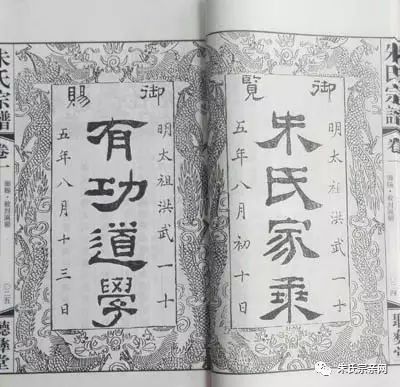 朱氏宗譜
卷
御覽
明太祖洪武一十
朱氏家乘
五年八月初十日
御賜
明太祖洪武一十
有功道學
五年八月十三日
朱氏宗譜
卷一
〇三五
聽彝堂
朱氏宗亲网